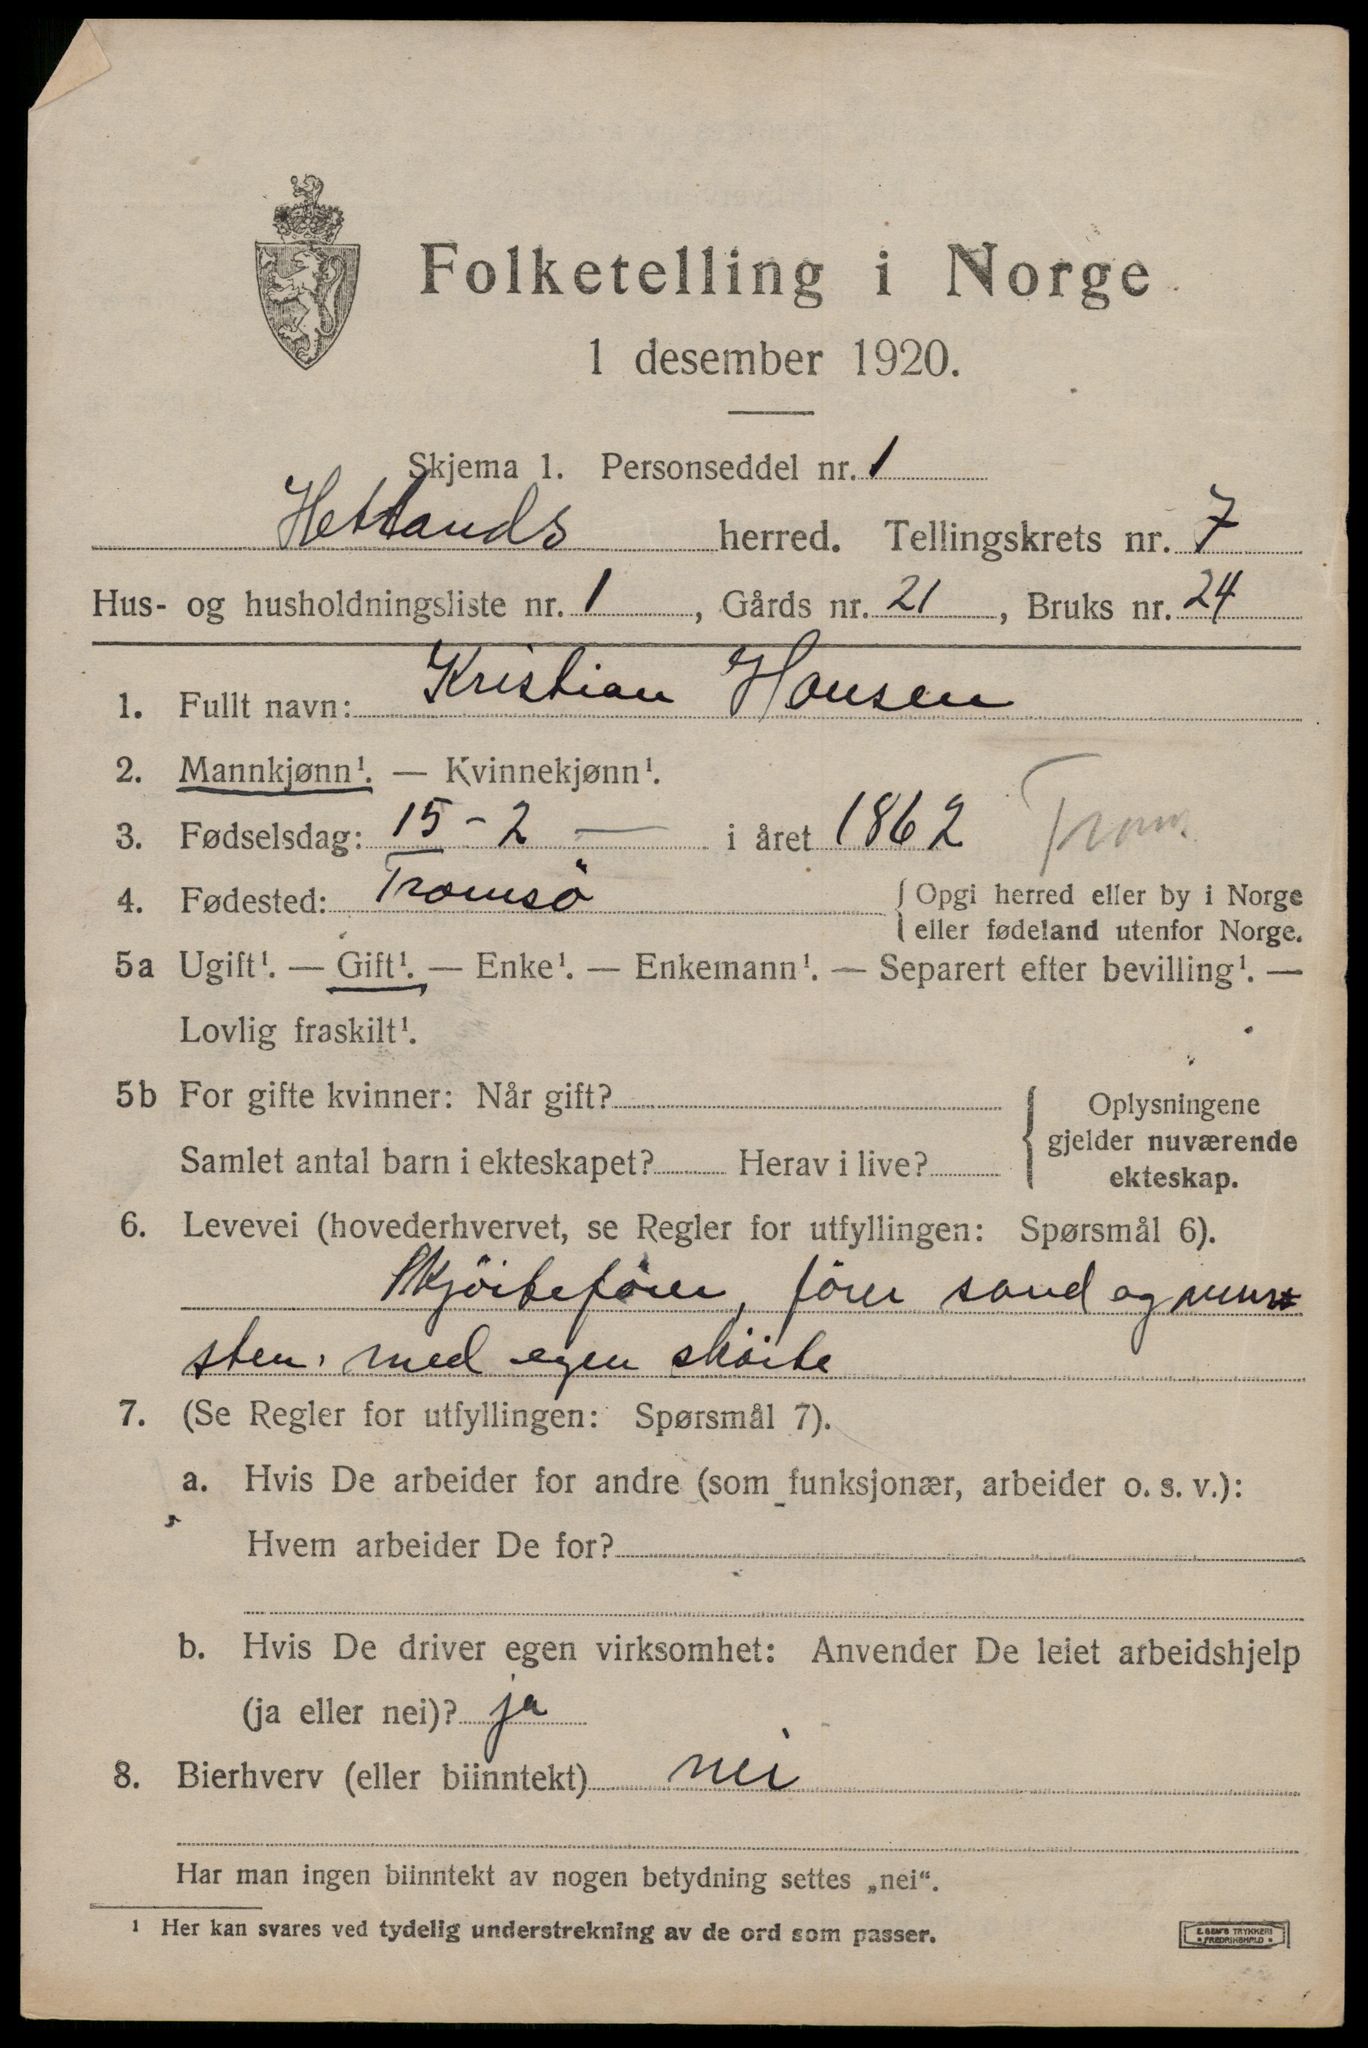 Folketelling i Norge
1 desember 1920.
Skjema 1. Personseddel nr. 1
Hetlands herred. Tellingskrets nr. 7
Hus- og husholdningsliste nr. 1, Gårds nr. 21, Bruks nr. 24
1. Fullt navn: Kristian Hansen
2. Mannkjønn¹. — Kvinnekjønn¹.
3. Fødselsdag: 15 - 2 — i året 1862 Trom.
4. Fødested: Tromsö { Opgi herred eller by i Norge
eller fødeland utenfor Norge.
5a Ugift¹. — Gift¹. — Enke¹. — Enkemann¹. — Separert efter bevilling¹. —
Lovlig fraskilt¹.
5b For gifte kvinner: Når gift? { Oplysningene
gjelder nuværende
Samlet antal barn i ekteskapet? Herav i live?
ekteskap.
6. Levevei (hovederhvervet, se Regler for utfyllingen: Spørsmål 6).
Skjöitefører, förer sand og mur
sten. med egen sköite
7. (Se Regler for utfyllingen: Spørsmål 7).
a. Hvis De arbeider for andre (som funksjonær, arbeider o. s. v.):
Hvem arbeider De for?
b. Hvis De driver egen virksomhet: Anvender De leiet arbeidshjelp
(ja eller nei)? ja
8. Bierhverv (eller biinntekt) nei
Har man ingen biinntekt av nogen betydning settes „nei“.
¹ Her kan svares ved tydelig understrekning av de ord som passer.
E. SEM'S TRYKKERI
FREDRIKSHALD